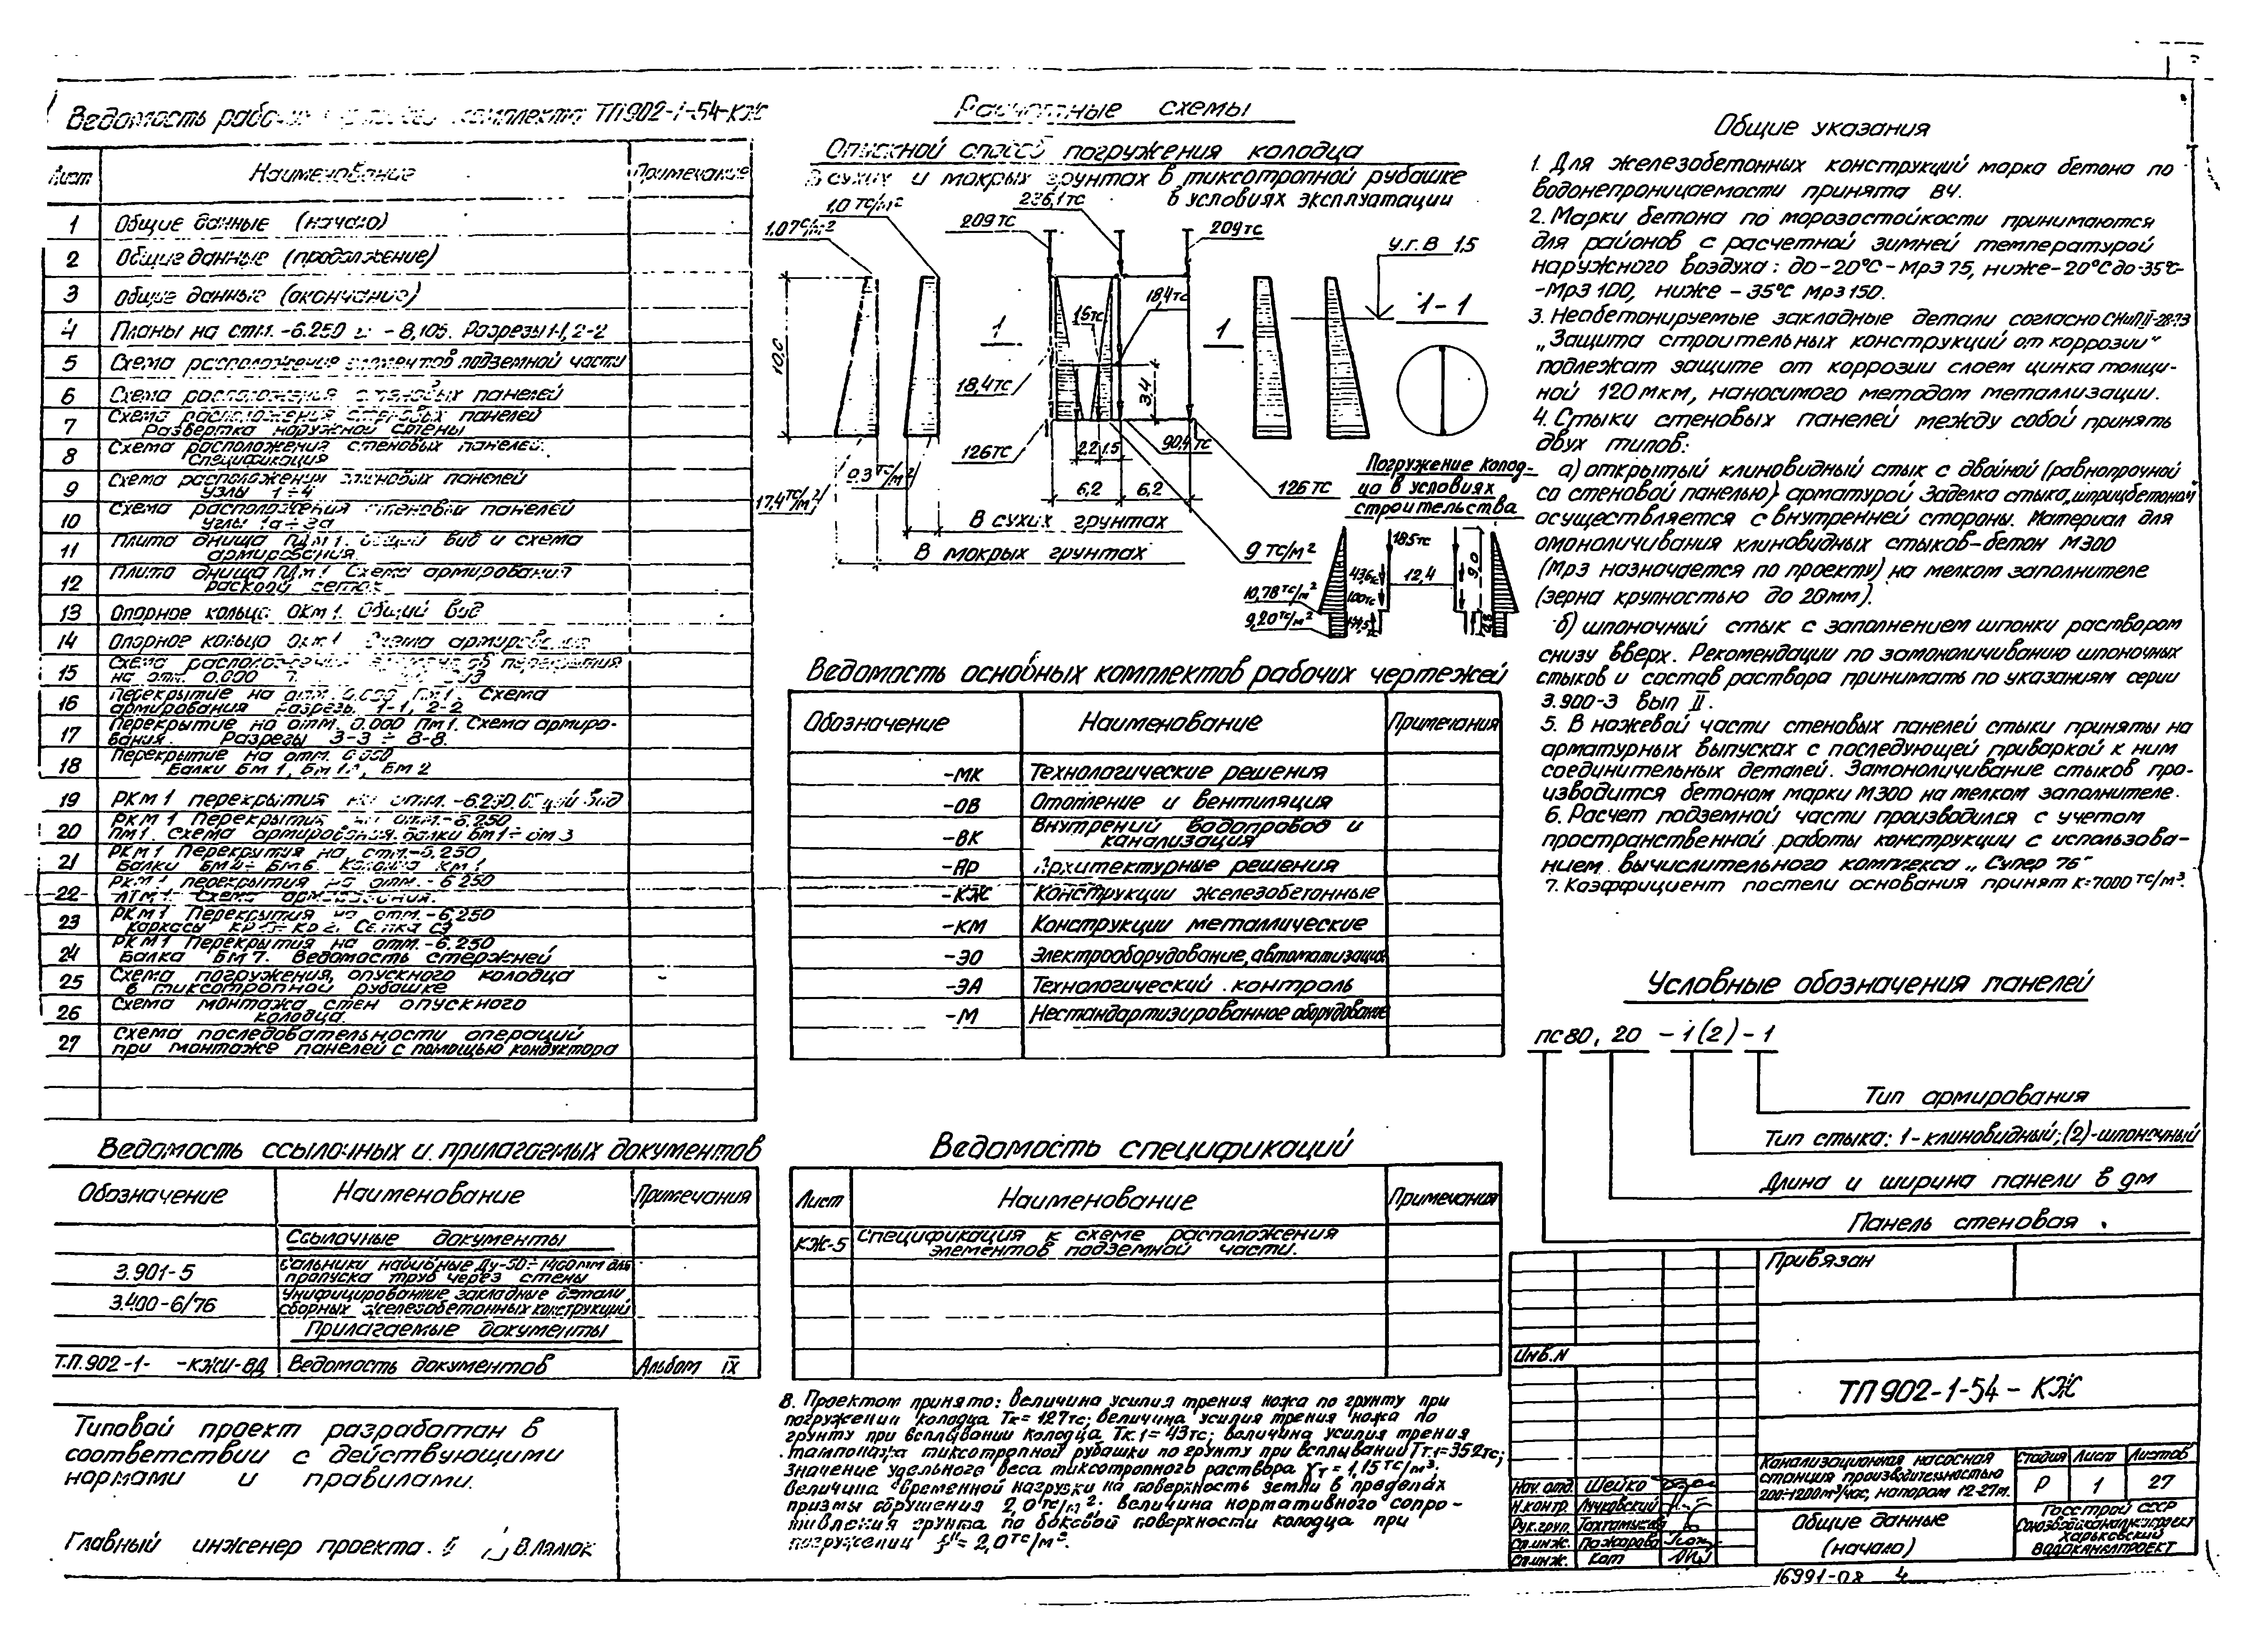 Ведомость рабочих комплекта ТП902-1-54-КЖ
Лист Наименование Примечание
1 Общие данные (начало)
2 Общие данные (продолжение)
3 Общие данные (окончание)
4 Планы на отм. -6.250 и -8,105. Разрезы 1-1, 2-2
5 Схема расположения элементов подземной части
6 Схема расположения стеновых панелей
7 Схема расположения стеновых панелей
Развертка наружной стены
8 Схема расположения стеновых панелей.
Спецификация
9 Схема расположения стеновых панелей
Узлы 1÷4
10 Схема расположения стеновых панелей
Узлы 1а÷3а
11 Плита днища ПДм1. Общий вид и схема
армирования
12 Плита днища ПДм1 Схема армирования
раскрой сеток
13 Опорное кольцо ОКм1. Общий вид
14 Опорное кольцо ОКм1 Схема армирования
15 Схема расположения перекрытия
на отм. 0.000
16 Перекрытие на отм. 0.000 Пм1. Схема
армирования Разрезы 1-1, 2-2
17 Перекрытие на отм. 0.000 Пм1. Схема армиро-
вания. Разрезы 3-3 ÷ 8-8.
18 Перекрытие на отм. 0.000
Балки Бм1, Бм1а, Бм2
19 РКм1 перекрытия на отм. -6.250. Общий вид
20 РКм1 Перекрытия на отм. -6.250
Пм1. Схема армирования. Балки Бм1÷Бм3
21 РКм1 Перекрытия на отм. -6.250
Балки Бм4÷Бм6 Колонна Км1
22 РКм1 перекрытия на отм. -6.250
ЛТм1. Схема армирования.
23 РКм1 Перекрытия на отм. -6.250
каркасы Сетка С3
24 РКм1 Перекрытия на отм. -6.250
Балка Бм7. Ведомость стержней
25 Схема погружения опускного колодца
в тиксотропной рубашке
26 Схема монтажа стен опускного
колодца.
27 Схема последовательности операций
при монтаже панелей с помощью кондуктора
Ведомость ссылочных и прилагаемых документов
Обозначение Наименование Примечания
Ссылочные документы
3.901-5 Сальники набивные Ду-50÷1400мм для
пропуска труб через стены
3.400-6/76 Унифицированные закладные детали
сборных железобетонных конструкций
Прилагаемые документы
Т.П.902-1- -КЖИ-ВД Ведомость документов Альбом IX
Типовой проект разработан в
соответствии с действующими
нормами и правилами.
Главный инженер проекта. В.Лялюк
Расчетные схемы
Опускной способ погружения колодца
В сухих и мокрых грунтах в тиксотропной рубашке
в условиях эксплуатации
1.0 тс/м²
1.0 тс/м²
209тс
236,1тс
209тс
У.Г.В 1.5
1-1
10,0
1
15тс
18,4тс
1
18,4тс
3,4
126тс
2,2 1.5
90,4тс
126тс
9.3 тс/м²
17,4тс/м²
6,2 6,2
В сухих грунтах
В мокрых грунтах
9 тс/м²
Погружение колод-
ца в условиях
строительства
185тс
43,6тс
100тс
12,4
9,0
10,78тс/м²
9,20тс/м²
Ведомость основных комплектов рабочих чертежей
Обозначение Наименование Примечания
-МК Технологические решения
-ОВ Отопление и вентиляция
-ВК Внутрений водопровод и
канализация
-АР Архитектурные решения
-КЖ Конструкции железобетонные
-КМ Конструкции металлические
-ЭО Электрооборудование, автоматизация
-ЭА Технологический контроль
-М Нестандартизированное оборудование
Ведомость спецификаций
Лист Наименование Примечания
КЖ-5 Спецификация к схеме расположения
элементов подземной части.
8. Проектом принято: величина усилия трения ножа по грунту при
погружении колодца Тк=127тс; величина усилия трения ножа по
грунту при всплывании колодца Тк.1=43тс; величина усилия трения
тампонажа тиксотропной рубашки по грунту при всплывании Тт.1=352тс;
значение удельного веса тиксотропного раствора γт=1,15тс/м³.
Величина временной нагрузки на поверхность земли в пределах
призмы обрушения 2,0тс/м²; величина нормативного сопро-
тивления грунта по боковой поверхности колодца при
погружении fн=2,0тс/м².
Общие указания
1. Для железобетонных конструкций марка бетона по
водонепроницаемости принята В4.
2. Марки бетона по морозостойкости принимаются
для районов с расчетной зимней температурой
наружного воздуха: до -20°С - Мрз 75, ниже -20°С до -35°С-
-Мрз 100, ниже -35°С Мрз 150.
3. Необетонируемые закладные детали согласно СНиП II-28-73
„Защита строительных конструкций от коррозии"
подлежат защите от коррозии слоем цинка толщи-
ной 120мкм, наносимого методом металлизации.
4. Стыки стеновых панелей между собой принять
двух типов:
а) открытый клиновидный стык с двойной (равнопрочной
со стеновой панелью) арматурой Заделка стыка „шприцбетоном"
осуществляется с внутренней стороны. Материал для
омоноличивания клиновидных стыков-бетон М300
(Мрз назначается по проекту) на мелком заполнителе
(зерна крупностью до 20мм).
б) шпоночный стык с заполнением шпонки раствором
снизу вверх. Рекомендации по замоноличиванию шпоночных
стыков и состав раствора принимать по указаниям серии
3.900-3 вып II.
5. В ножевой части стеновых панелей стыки приняты на
арматурных выпусках с последующей приваркой к ним
соединительных деталей. Замоноличивание стыков про-
изводится бетоном марки М300 на мелком заполнителе.
6. Расчет подземной части производился с учетом
пространственной работы конструкции с использова-
нием вычислительного комплекса „Супер 76"
7. Коэффициент постели основания принят К=7000 тс/м³.
Условные обозначения панелей
ПС80, 20 - 1(2) - 1
Тип армирования
Тип стыка: 1-клиновидный; (2)-шпоночный
Длина и ширина панели в дм
Панель стеновая
Привязан
Инв.N
ТП902-1-54-КЖ
Канализационная насосная
станция производительностью
200÷1200м³/час, напором 12-27м.
Стадия Лист Листов
Р 1 27
Нач.отд. Шейко
Н.контр. Лучковский
Рук.груп. Тахтамышева
Сп.инж. Пожарова
Сп.инж. Кот
Общие данные
(начало)
Госстрой СССР
Союзводоканалпроект
Харьковский
Водоканалпроект
16991-08 4